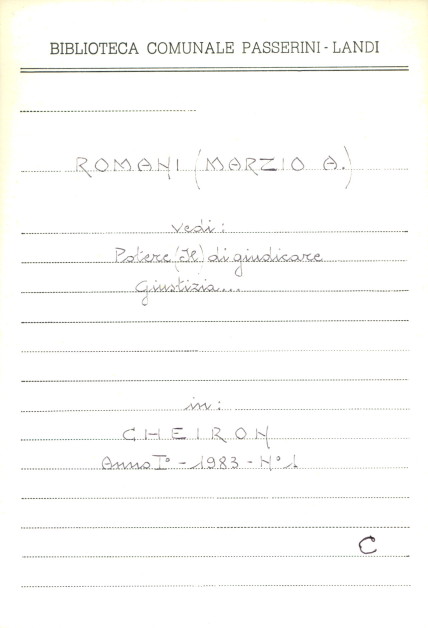 BIBLIOTECA COMUNALE PASSERINI - LANDI
ROMANI (MARZIO A.)
vedi:
Potere (Il) di giudicare
Giustizia...
in:
CHEIRON
Anno I° - 1983 - N° 1
C